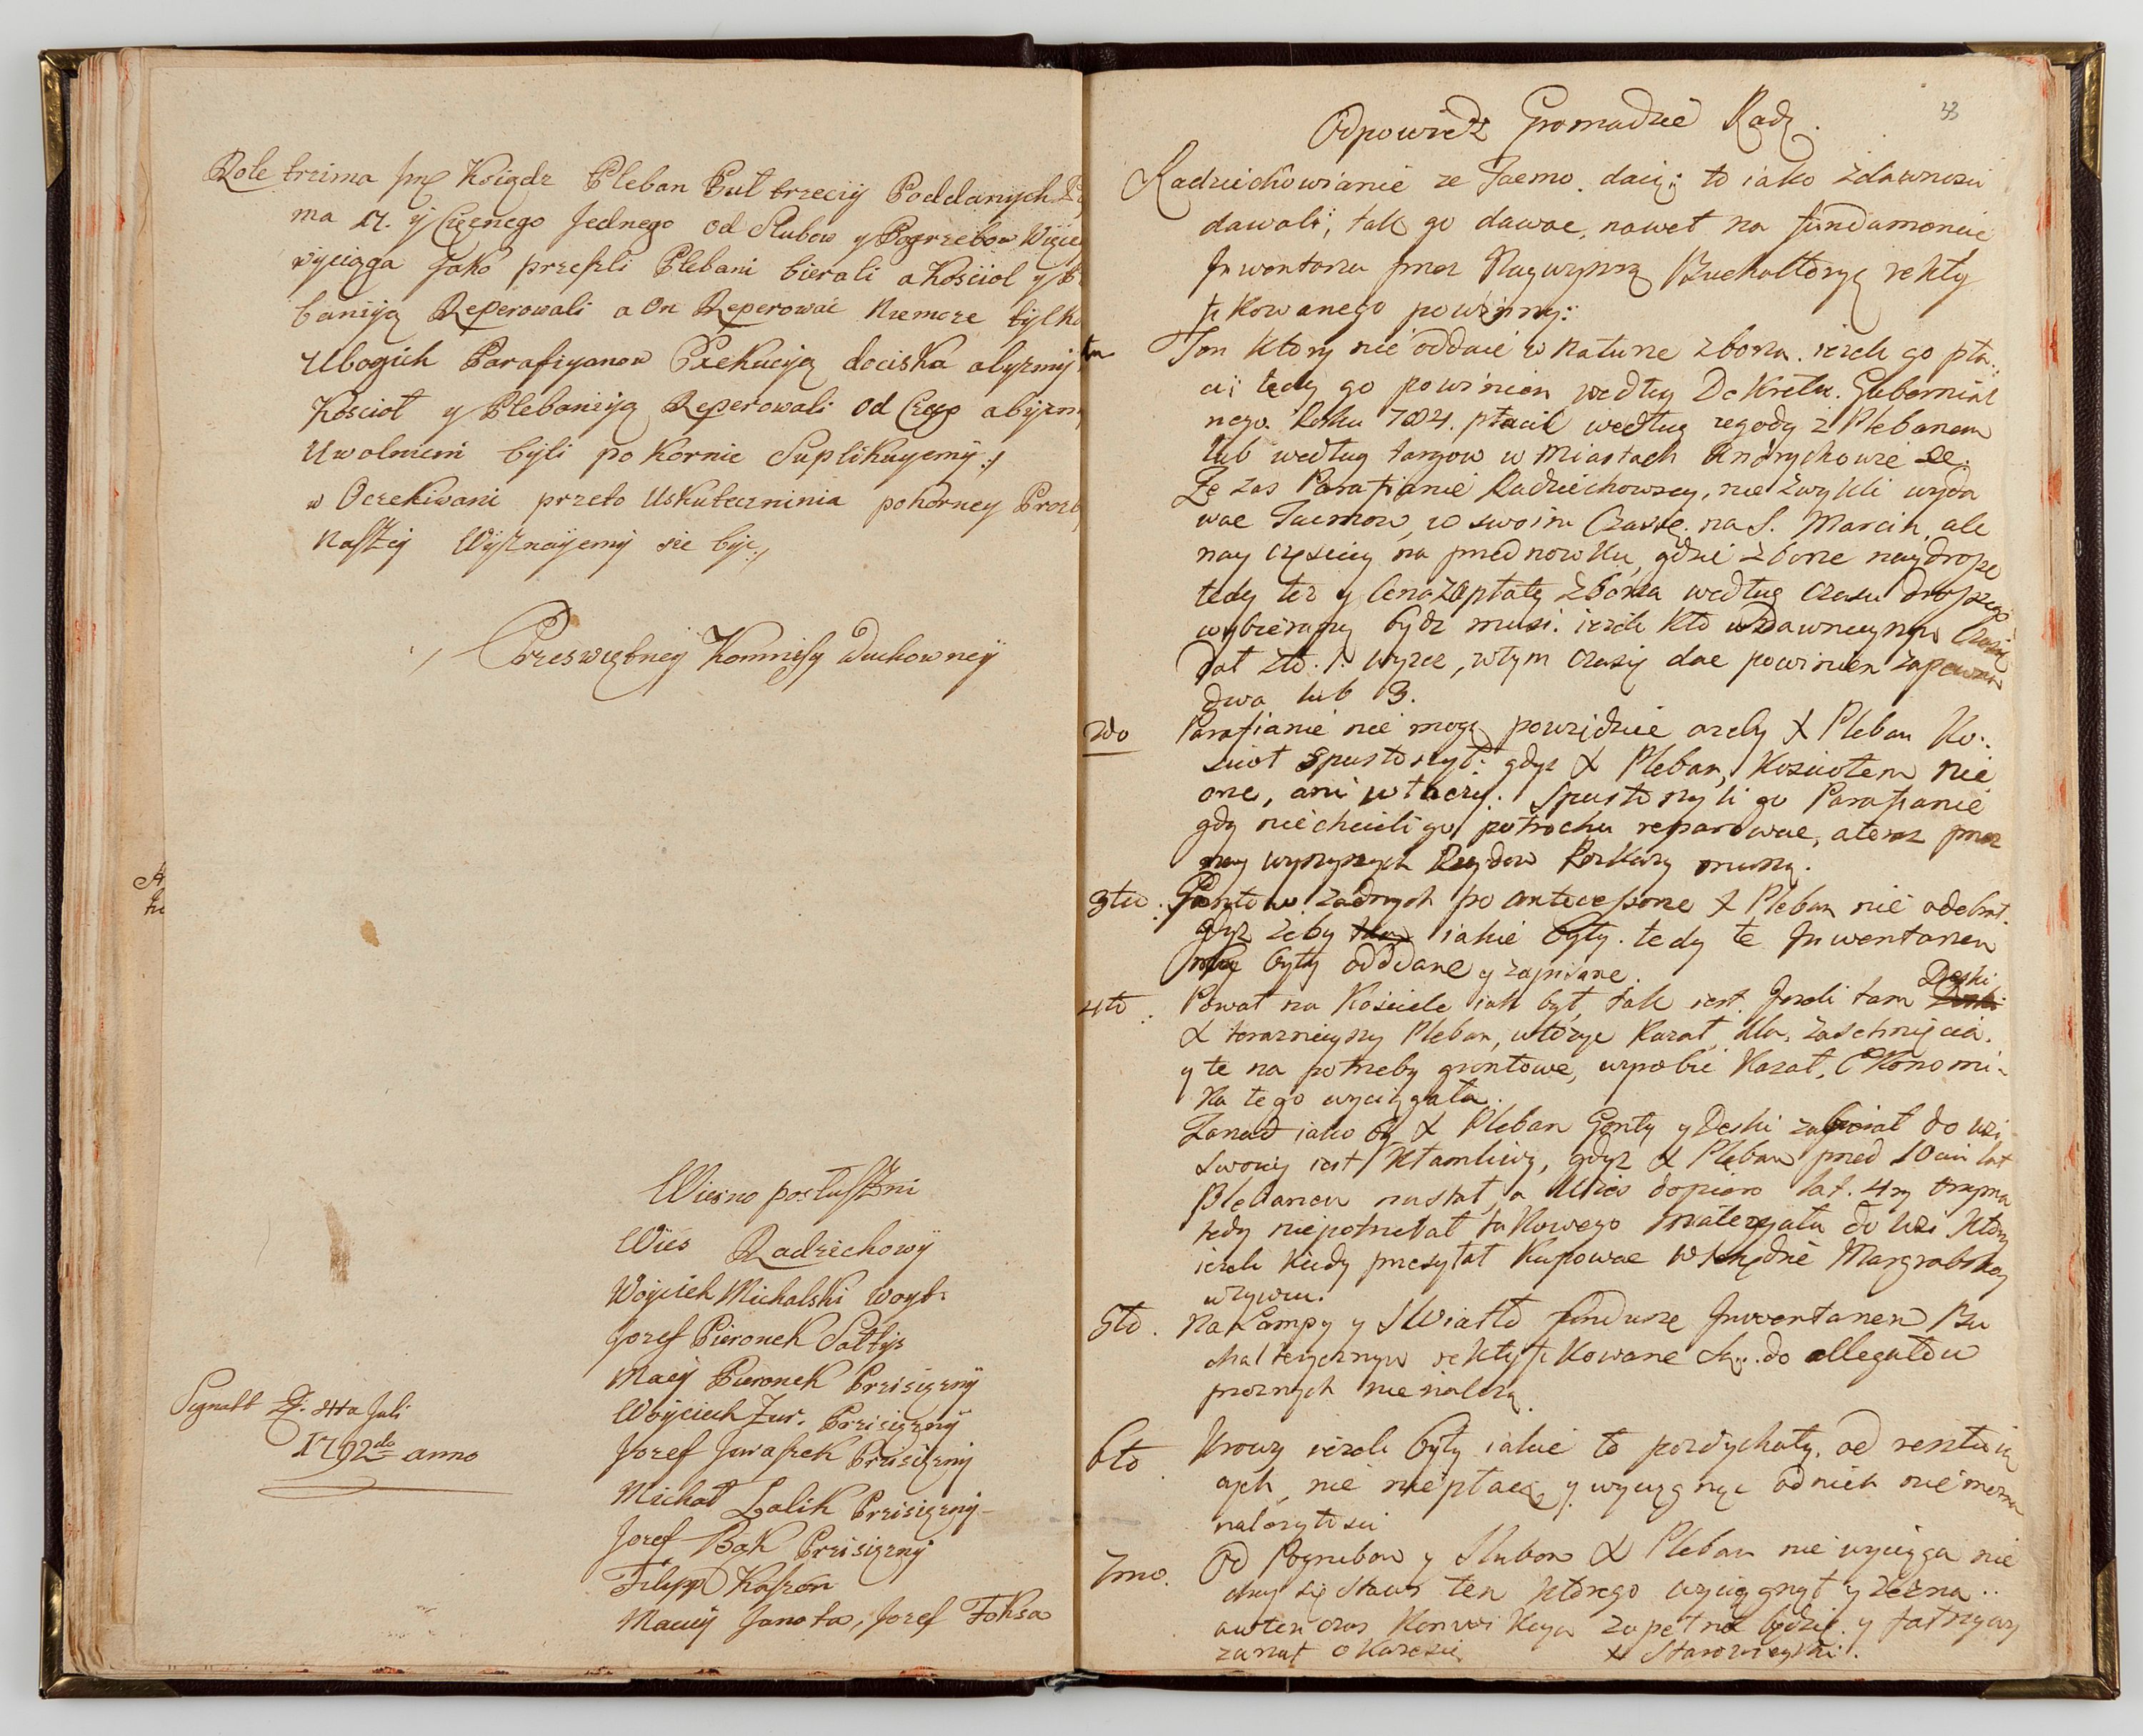 Role trzima Księdz Pleban Puł trzeciy Poddanych
ma 17. y Częnego Jednego od Slubow y Pogrzebow Więce
wyciąga Jako przeszli Plebani bierali a Kościoł y
baniyą Reperowali a On Reperować Niemoze tylko
Ubogich Parafiyanow Exekucyją dociska abyzmy
Kościoł y Plebaniyą Reperowali od Czego abyzmy
Uwolnieni byli pokornie Suplikuyemy
w Oczekiwani przeto Uskuteczninia pokorney Prozby
Naszey Wyznayemy sie byc
Przeswiętney Komissy Duchowney
Wierno posłuszni
Wies Radziechowy
Woyciek Michalski Woyt
Jozef Pieronek Sołtys
Maciy Pieronek Przisiężny
Woyciech Zur. Przisiężny
Jozef Jwaszek Przisiężny
Michał Lalik Przisiężny
Jozef Bąk Przisiężny
Filipp Kaszon
Maciy Janota, Jozef Foksa
Signatt D. 8tta Juli
1792do anno
43
Odpowiedz Gromadzie Radz.
Radziechowianie ze Tacmo. daią to iako zdawnosci
dawali, tak go dawac, nawet na fundamencie
Inwentarza przez Naywyzszą Buchalteryą rekty
fikowanego powinny:
Ten ktory nie oddaie w naturze zboza. iezeli go pła:
ci; tedy go powinien według Dekretu. Gubernial
nego. Roku 784. płacić według zgody z Plebanem
lub według targow w Miastach Andrychowie
Ze zas Parafianie Radziechowscy, nie zwykli wyda
wac Tacmow, w swoim Czasie na S. Marcin, ale
nay częsciey na przednowku, gdzie zboze naydrozsze
tedy tez y Cena zapłaty zboza według czasu drozszego
wybierany bydz musi. iezeli kto w dawnieyszym Czasie
dał Zło. 1. wyzec, wtym czasiy dac powinien zapewne
dwa lub 3.
2do Parafianie nie mogą powiedziec azeby X Pleban Ko:
scioł spustoszył: gdyz X Pleban, Kosciołem nie
orze, ani włoczy. Spustoszyli go Parafianie
gdy niechcieli go potrochu reparowac, a teraz przez
naywyzszych Rządow Rozkazy muszą.
3tio. Gontow zadnych po antecessorze X Pleban nie odebrał.
gdyz zeby iakie były. tedy te Inwentarzem
były oddane y zapisane.
4to Pował na Kościele iak był, tak iest. Jezeli tam Deski
X terazniejszy Pleban, włozyc kazał, dla zaschnięcia.
y te na potrzeby gruntowe, wyrobic kazał, Ekonomi-
ka tego wyciągała.
Zarzud iako by X Pleban Gonty y Deski zabierał do wsi
swoiey iest Kłamliwy, gdyz X Pleban przed 10ciu lat
Plebanem nastał, a Wies dopiero lat. 4ry trzyma
tedy niepotrzebał takowego materyału do wsi. Ktory
iezeli kiedy przesyłał kupowac w Skrędnie Margrabskey
uzywał.
5to. Na Lampy y Swiatło fundusze Inwentarzem Bu
chalterycznym rektyfikowane są. do allegatow
proznych nie naleza.
6to Krowy iezeli były iakie to pozdychały, od restuią
cych, nie niepłacą y wyciągnąc od nich nie mozna
nalezytosci
7mo. Od Pogrzebow y Slubow X Pleban nie wyciąga nie
chay się stawi ten ktorego wyciągnął y zezna..
owten czas Konwikcya zupełna będzie. y fałszywy
zarzut okazesię X Starowieyski.